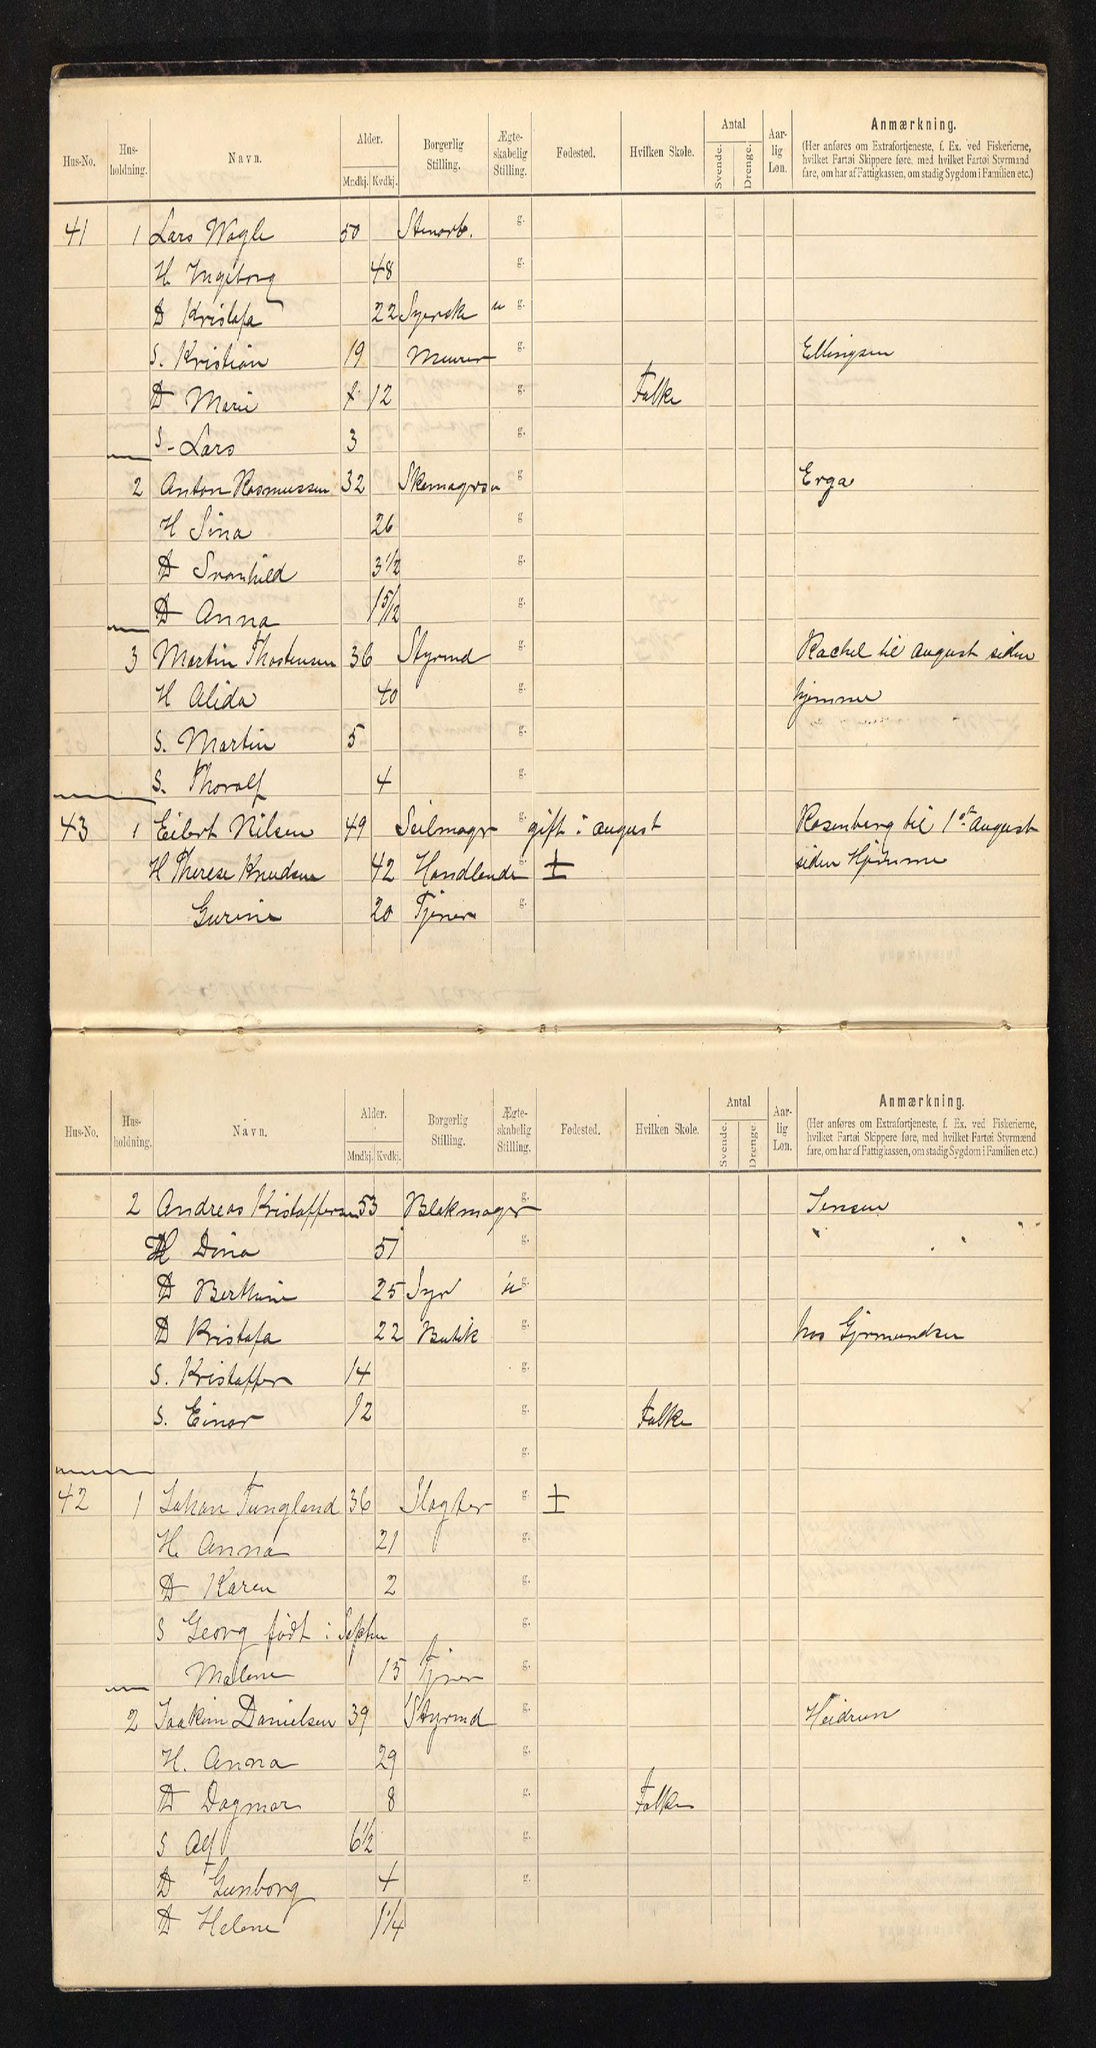 Hus-No. Hus-holdning. Navn. Alder. Mndkj. Kvdkj. Borgerlig Stilling. Ægte-skabelig Stilling. Fødested. Hvilken Skole. Antal Svende. Drenge. Aar-lig Løn. Anmærkning.
(Her anføres om Extrafortjeneste, f. Ex. ved Fiskerierne, hvilket Fartøi Skippere føre, med hvilket Fartøi Styrmænd fare, om har af Fattigkassen, om stadig Sygdom i Familien etc.)
41 1 Lars Wagle 50 Stenarb. g.
H Ingeborg 48 g.
D Kristofa 22 Syerske u g.
S. Kristian 19 Murer g. Ellingsen
D Marie 12 g. Folke
S- Lars 3 g.
2 Anton Rasmussen 32 Skomagersv g. Erga
H Sina 26 g.
D Svanhild 3 1/2 g.
D Anna 1 5/12 g.
3 Martin Thostensen 36 Styrmd g. Rachel til august siden
H Alida 40 g. hjemme
S. Martin 5 g.
S. Thoralf 4 g.
43 1 Eilert Nilsen 49 Seilmagr g. gift i august Rosenberg til 1st August
H Therese Knudsen 42 Handlende g. ± siden Hjemme
Gurine 20 Tjener g.
Hus-No. Hus-holdning. Navn. Alder. Mndkj. Kvdkj. Borgerlig Stilling. Ægte-skabelig Stilling. Fødested. Hvilken Skole. Antal Svende. Drenge. Aar-lig Løn. Anmærkning.
(Her anføres om Extrafortjeneste, f. Ex. ved Fiskerierne, hvilket Fartøi Skippere føre, med hvilket Fartøi Styrmænd fare, om har af Fattigkassen, om stadig Sygdom i Familien etc.)
2 Andreas Kristoffersen 53 Blokmager g. Jensen
H Dina 51 g. " " "
D Berthine 25 Syr u g.
D Kristofa 22 Butik g. hos Gjermundsen
S. Kristoffer 14 g.
S. Einar 12 g. Folke
g.
42 1 Johan Tungland 36 Slagter g. ±
H. Anna 21 g.
D Karen 2 g.
S Georg født i Septbr g.
Malene 15 Tjener g.
2 Joakim Danielsen 39 Styrmd g. Heidrun
H. Anna 29 g.
D Dagmar 8 g. Folke
S Alf 6 1/2 g.
D Gunborg 4 g.
D Helene 1 1/4